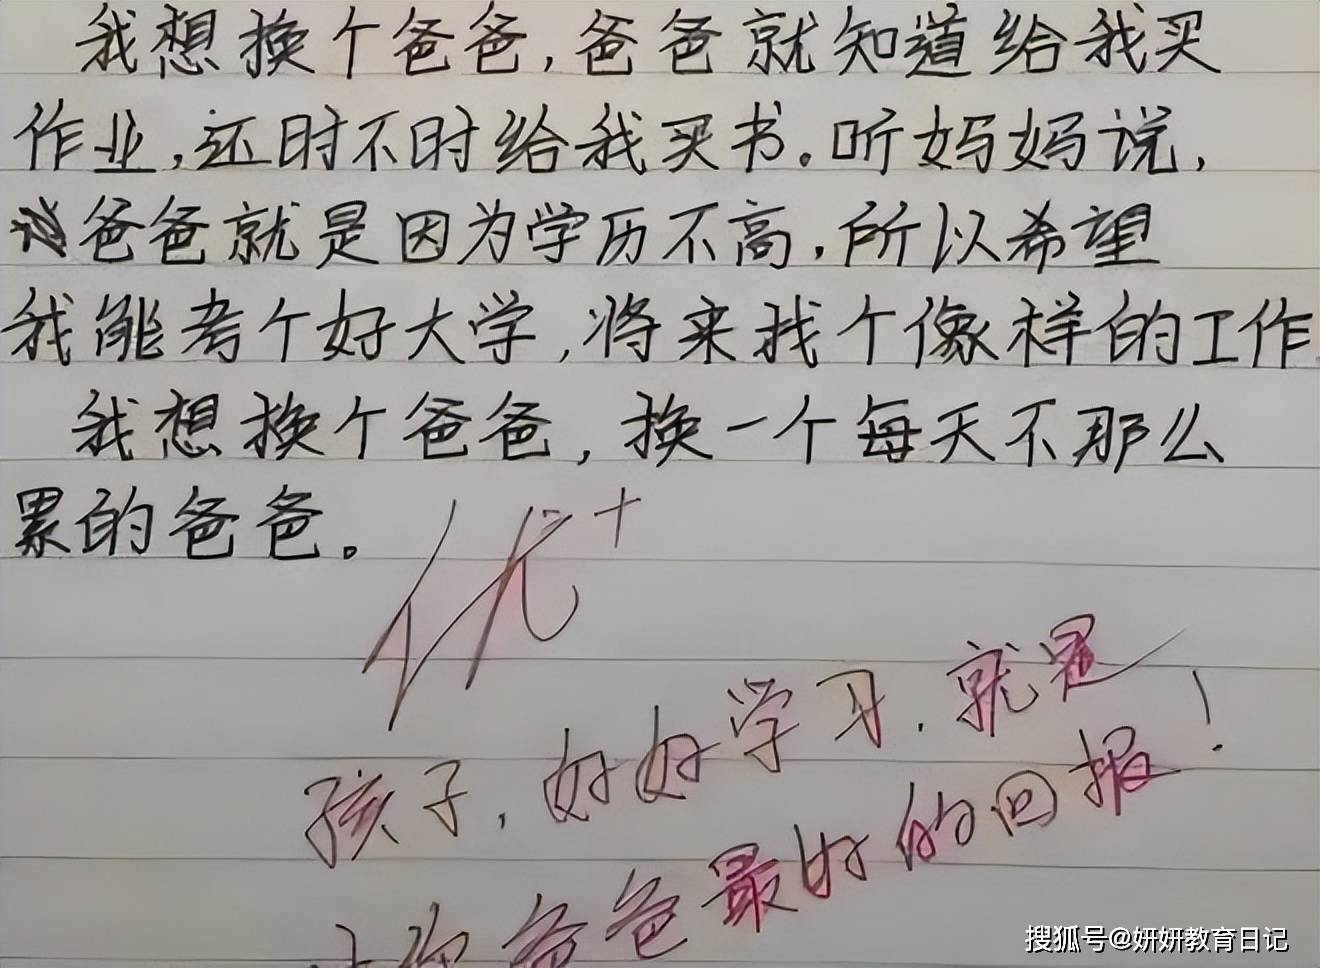 我想换个爸爸,爸爸就知道给我买
作业,还时不时给我买书。听妈妈说,
爸爸就是因为学历不高,所以希望
我能考个好大学,将来找个像样的工作
我想换个爸爸,换一个每天不那么
累的爸爸。
优+
孩子,好好学习,就是
对你爸爸最好的回报!
搜狐号@妍妍教育日记